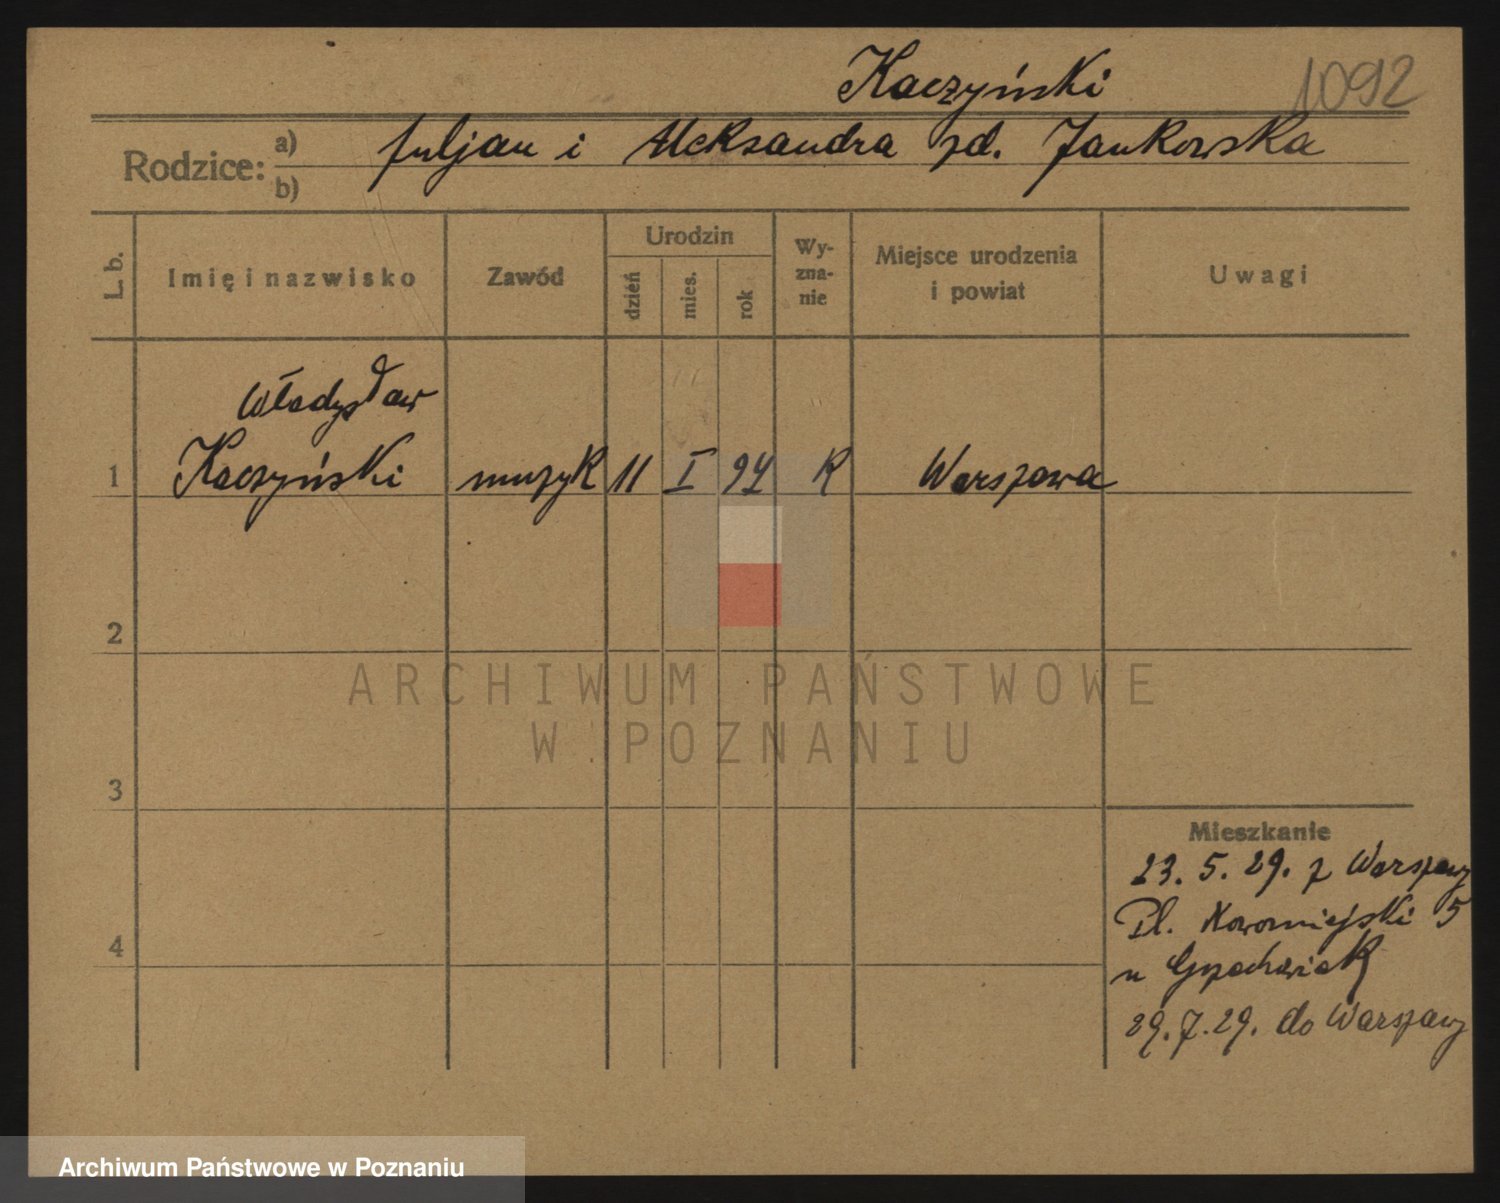 Kaczyński 1092
Rodzice: a) Juljan i Aleksandra zd. Jankowska
b)
L. b. Imię i nazwisko Zawód Urodzin dzień mies. rok Wy-zna-nie Miejsce urodzenia i powiat Uwagi
Władysław
1 Kaczyński muzyk 11 I 94 R Warszawa
2
ARCHIWUM PAŃSTWOWE
W POZNANIU
3
Mieszkanie
23. 5. 29. z Warszawy
Pl. Nowomiejski 5
4
u Grzechowiak
29. 7. 29. do Warszawy
Archiwum Państwowe w Poznaniu